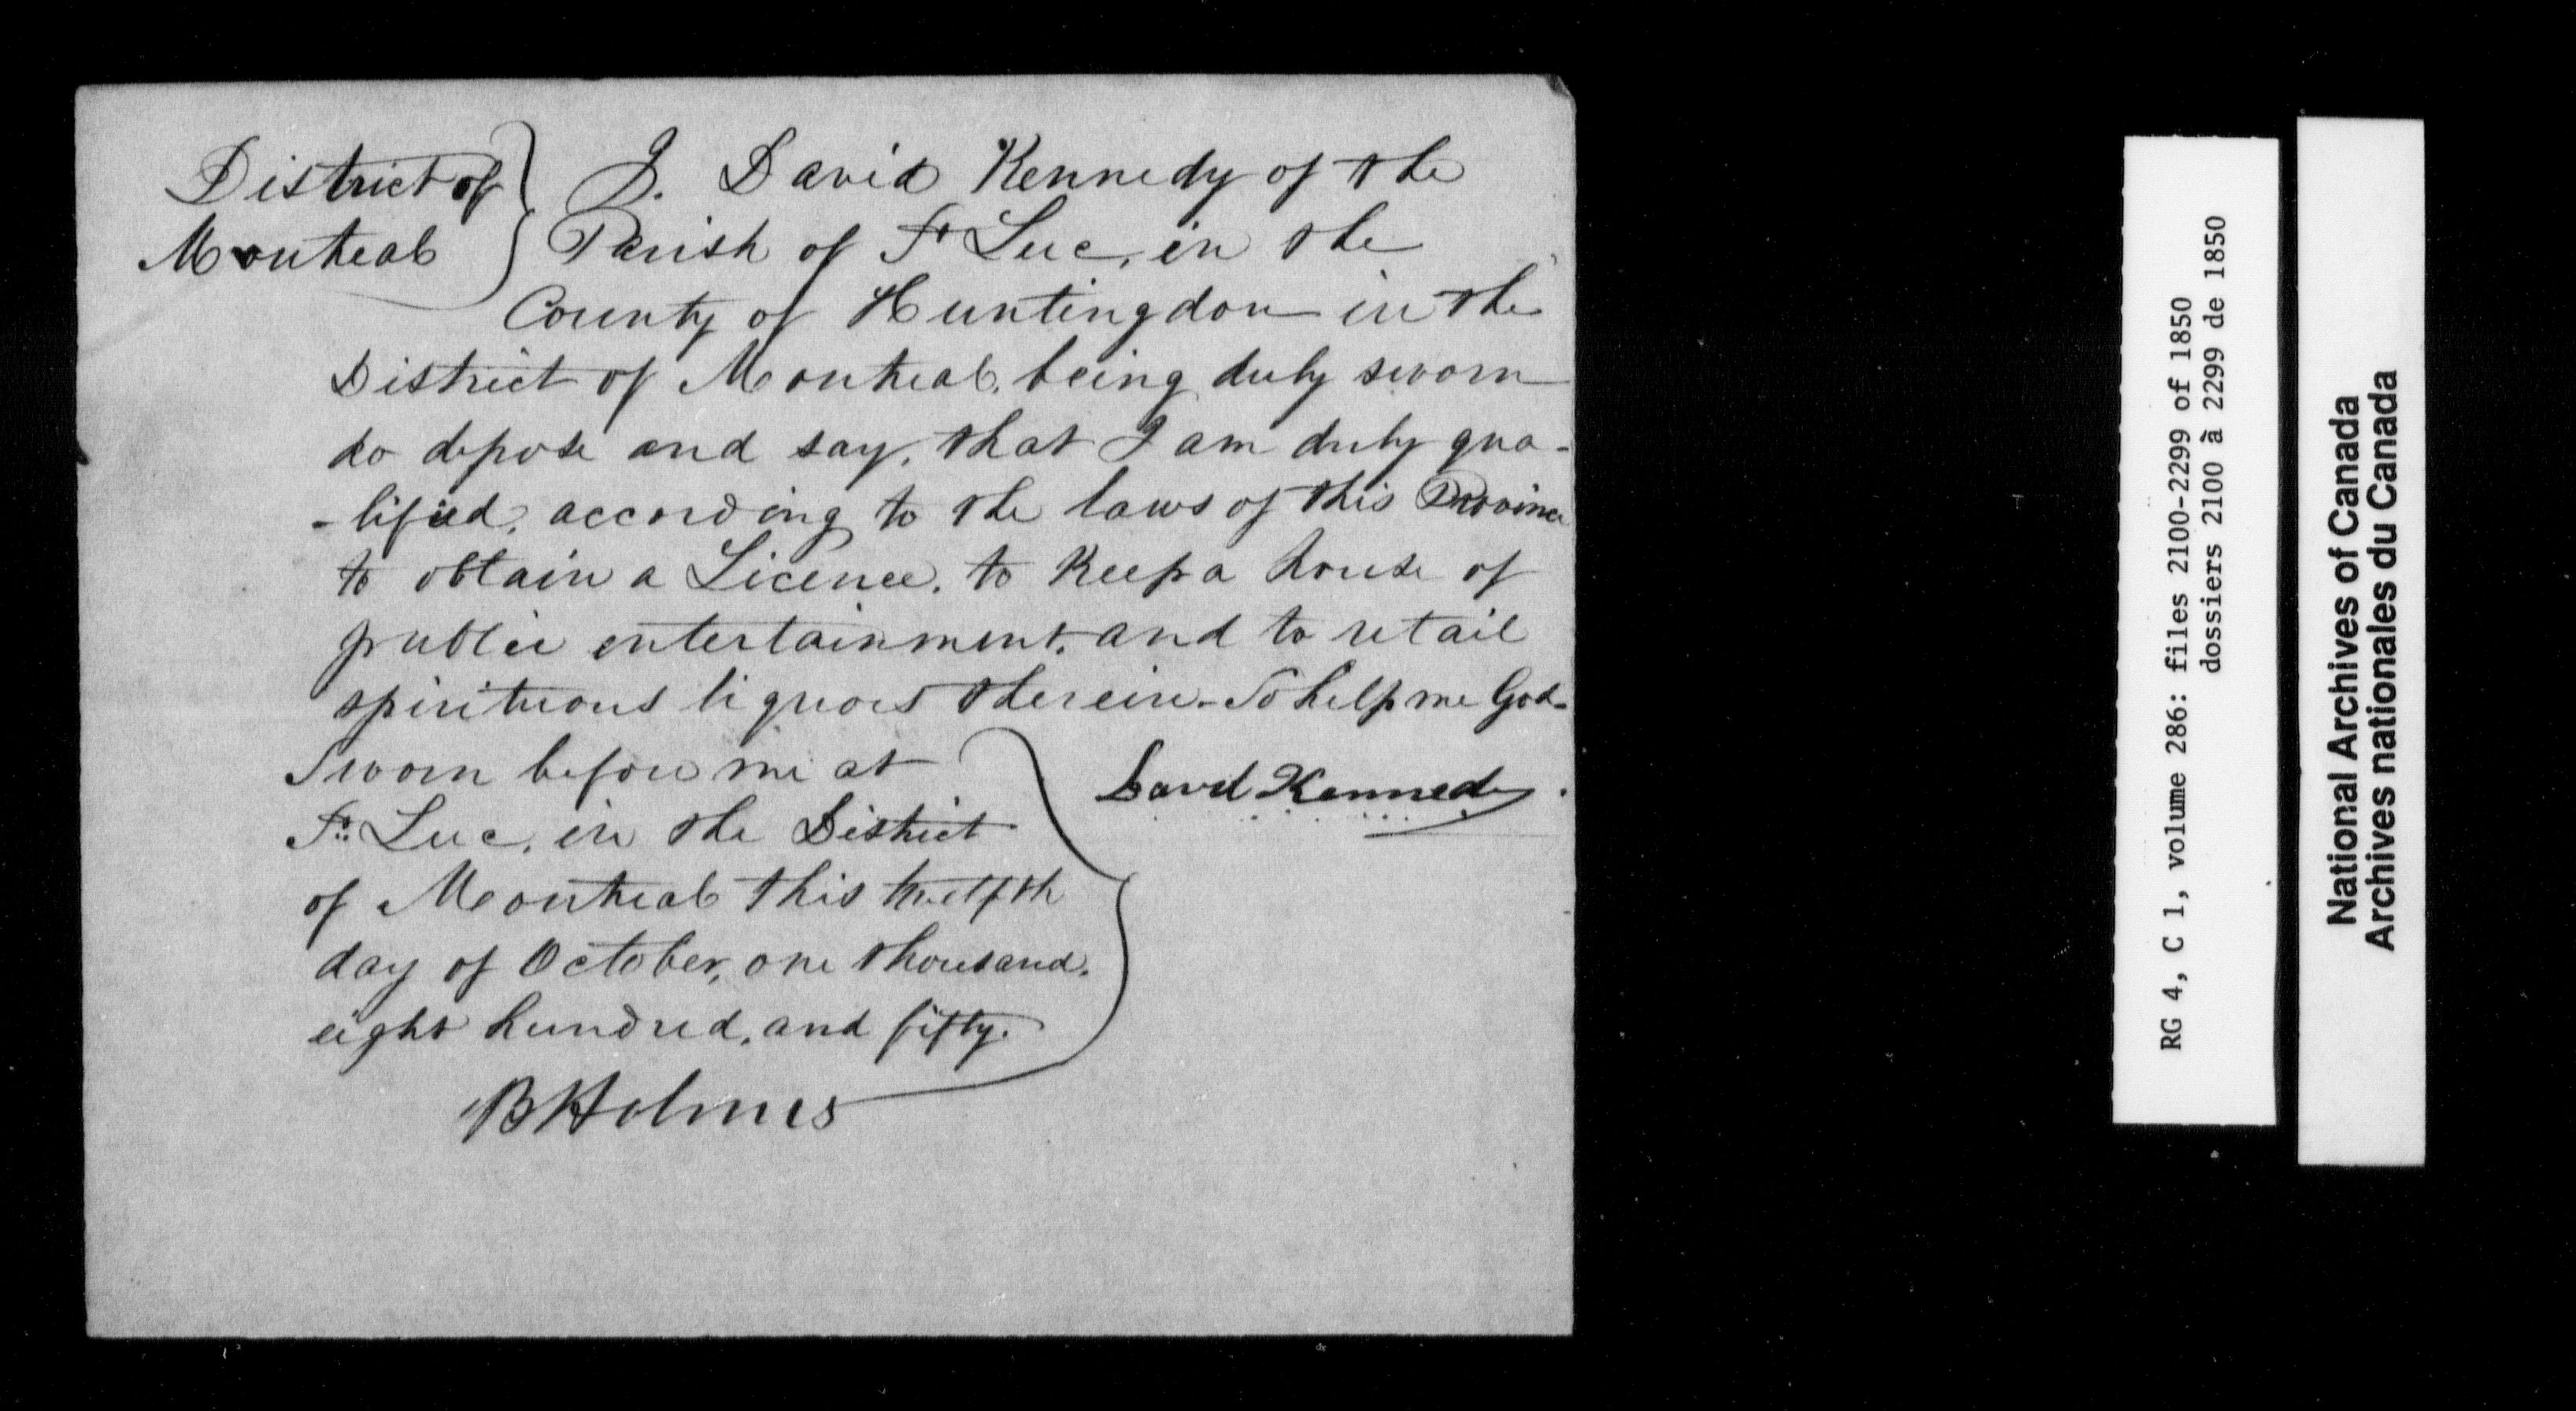 District of } I. David Kennedy of the
Montreal } Parish of St Luc, in the
County of Huntingdon in the
District of Montreal, being duly sworn
do depose and say, that I am duly qua-
-lified, according to the laws of this Province
to obtain a Licence, to keep a house of
public entertainment, and to retail
spirituous liquors therein. So help me God.
Sworn before me at
St. Luc, in the District
of Montreal this twelfth
day of October, one thousand,
eight hundred, and fifty.
David Kennedy.
B Holmes
RG 4, C 1, volume 286: files 2100-2299 of 1850
dossiers 2100 à 2299 de 1850
National Archives of Canada
Archives nationales du Canada